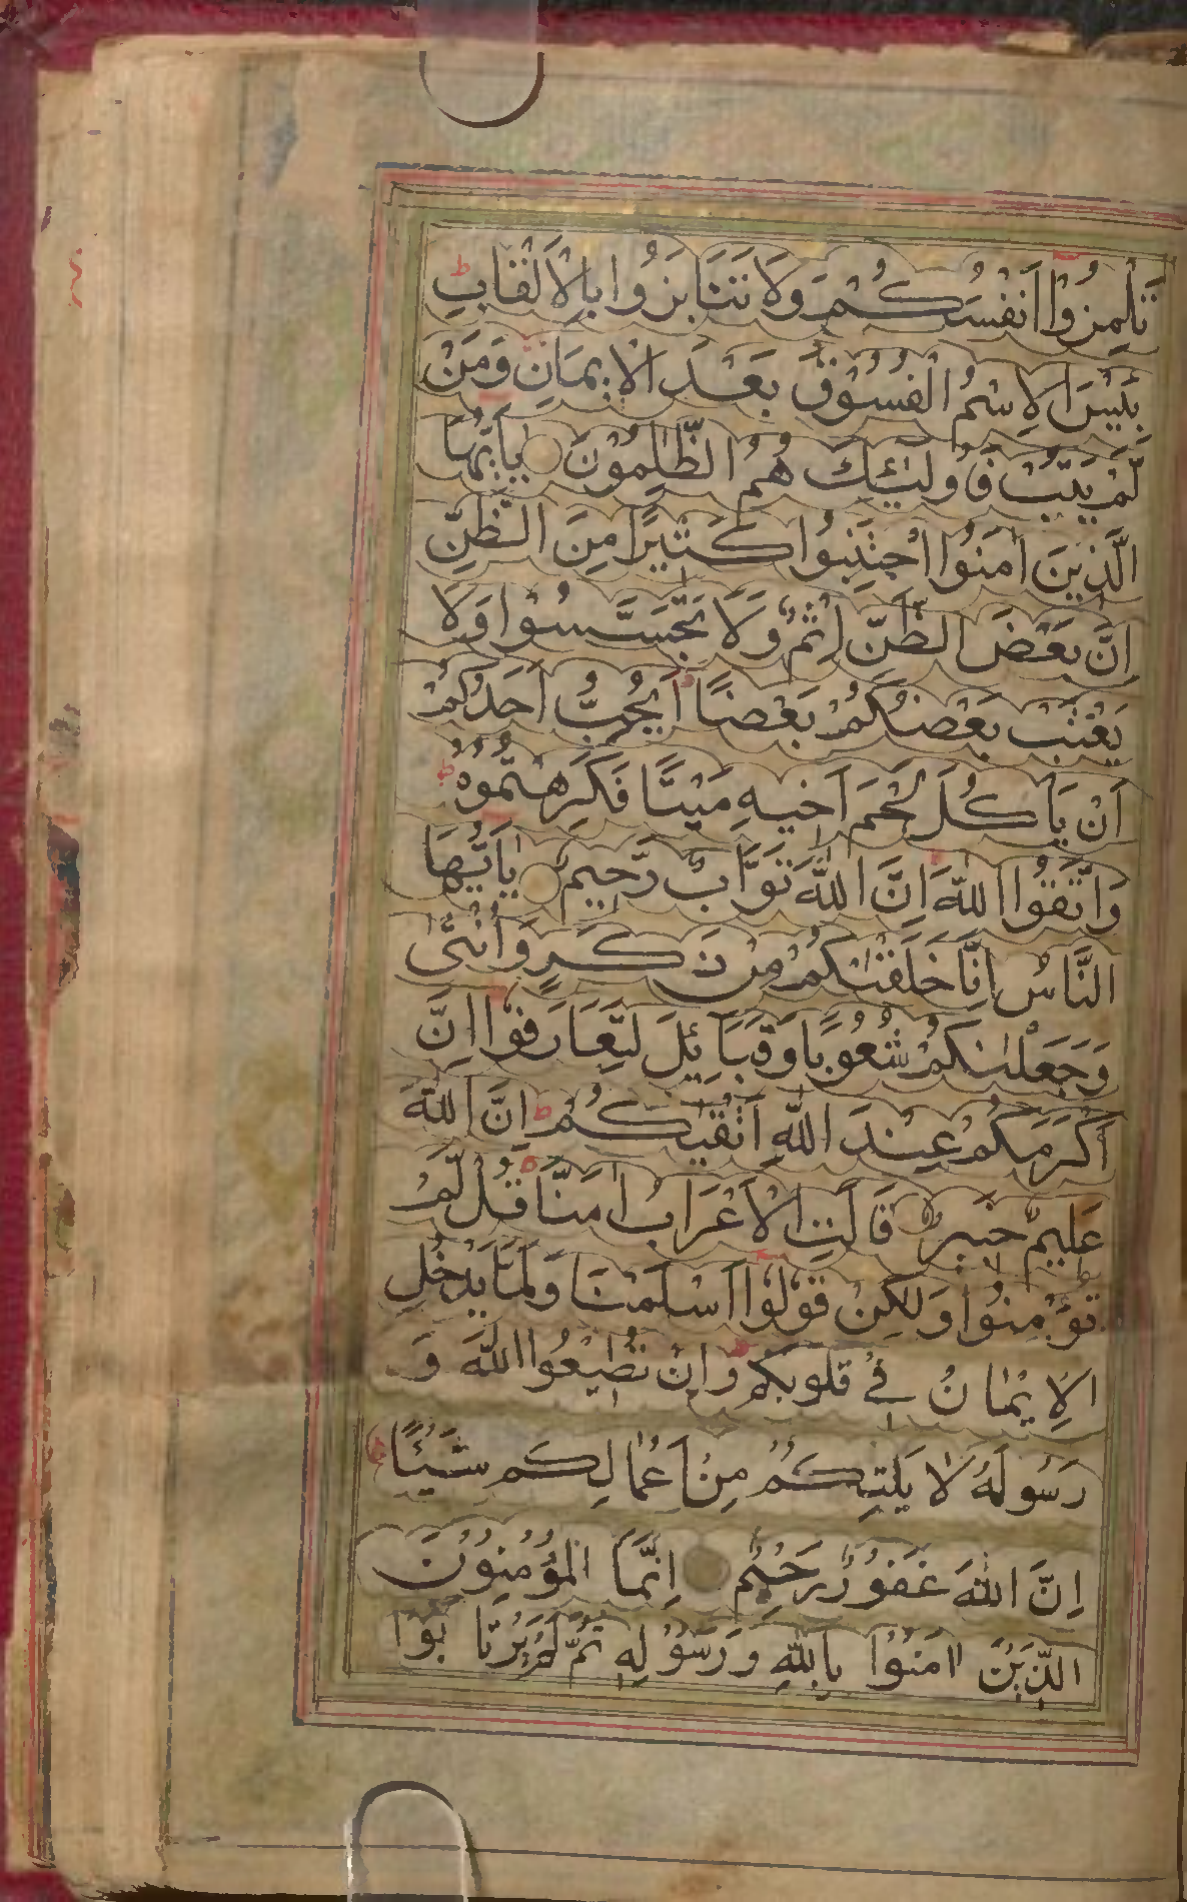 تَلْمِزُوْا اَنْفُسَكُمْ وَلَا تَنَابَزُوا بِالْاَلْقَابِ ط
بِئْسَ الِاسْمُ الْفُسُوْقُ بَعْدَ الْاِيمَانِ وَمَنْ
لَّمْ يَتُبْ فَاُولٰئِكَ هُمُ الظّٰلِمُوْنَ يٰاَيُّهَا
الَّذِينَ اٰمَنُوا اجْتَنِبُوا كَثِيْرًا مِنَ الظَّنِّ
اِنَّ بَعْضَ الظَّنِّ اِثْمٌ وَلَا تَجَسَّسُوْا وَلَا
يَغْتَبْ بَعْضُكُمْ بَعْضًا اَيُحِبُّ اَحَدُكُمْ
اَنْ يَاْكُلَ لَحْمَ اَخِيهِ مَيْتًا فَكَرِهْتُمُوْهُ ط
وَاتَّقُوا اللّٰهَ اِنَّ اللّٰهَ تَوَّابٌ رَّحِيمٌ يٰاَيُّهَا
النَّاسُ اِنَّا خَلَقْنٰكُمْ مِنْ ذَكَرٍ وَاُنْثٰى
وَجَعَلْنٰكُمْ شُعُوْبًا وَقَبَايِٕلَ لِتَعَارَفُوْا اِنَّ
اَكْرَمَكُمْ عِنْدَ اللّٰهِ اَتْقٰيكُمْ ط اِنَّ اللّٰهَ
عَلِيمٌ خَبِيرٌ قَالَتِ الْاَعْرَابُ اٰمَنَّا قُلْ لَّمْ
تُؤْمِنُوا وَلٰكِنْ قُوْلُوْا اَسْلَمْنَا وَلَمَّا يَدْخُلِ
الْاِيْمَانُ فِيْ قُلُوبِكُمْ وَاِنْ تُطِيْعُوا اللّٰهَ وَ
رَسُوْلَهُ لَا يَلِتْكُمْ مِنْ اَعْمَالِكُمْ شَيْئًا ط
اِنَّ اللّٰهَ غَفُوْرٌ رَحِيْمٌ اِنَّمَا الْمُؤْمِنُوْنَ
الَّذِيْنَ اٰمَنُوْا بِاللّٰهِ وَرَسُوْلِهِ ثُمَّ لَمْ يَرْتَابُوْا